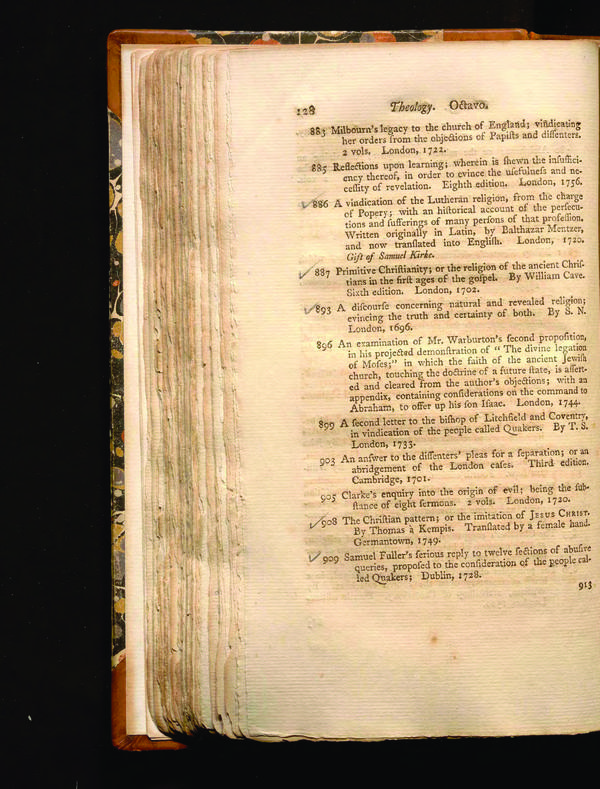 128 Theology. Octavo.
883 Milbourn's legacy to the church of England; vindicating
her orders from the objections of Papiſts and diſſenters.
2 vols. London, 1722.
885 Reflections upon learning; wherein is ſhewn the inſuffici-
ency thereof, in order to evince the uſefulneſs and ne-
ceſſity of revelation. Eighth edition. London, 1756.
886 A vindication of the Lutheran religion, from the charge
of Popery; with an hiſtorical account of the perſecu-
tions and ſufferings of many perſons of that profeſſion.
Written originally in Latin, by Balthazar Mentzer,
and now tranſlated into Engliſh. London, 1720.
Gift of Samuel Kirke.
887 Primitive Chriſtianity; or the religion of the ancient Chriſ-
tians in the firſt ages of the goſpel. By William Cave.
Sixth edition. London, 1702.
893 A diſcourſe concerning natural and revealed religion;
evincing the truth and certainty of both. By S. N.
London, 1696.
896 An examination of Mr. Warburton's ſecond propoſition,
in his projected demonſtration of "The divine legation
of Moſes;" in which the faith of the ancient Jewiſh
church, touching the doctrine of a future ſtate, is aſſert-
ed and cleared from the author's objections; with an
appendix, containing conſiderations on the command to
Abraham, to offer up his ſon Iſaac. London, 1744.
899 A ſecond letter to the biſhop of Litchfield and Coventry,
in vindication of the people called Quakers. By T. S.
London, 1733.
903 An anſwer to the diſſenters' pleas for a ſeparation; or an
abridgement of the London caſes. Third edition.
Cambridge, 1701.
905 Clarke's enquiry into the origin of evil; being the ſub-
ſtance of eight ſermons. 2 vols. London, 1720.
908 The Chriſtian pattern; or the imitation of JESUS CHRIST.
By Thomas à Kempis. Tranſlated by a female hand.
Germantown, 1749.
909 Samuel Fuller's ſerious reply to twelve ſections of abuſive
queries, propoſed to the conſideration of the people cal-
led Quakers; Dublin, 1728.
913